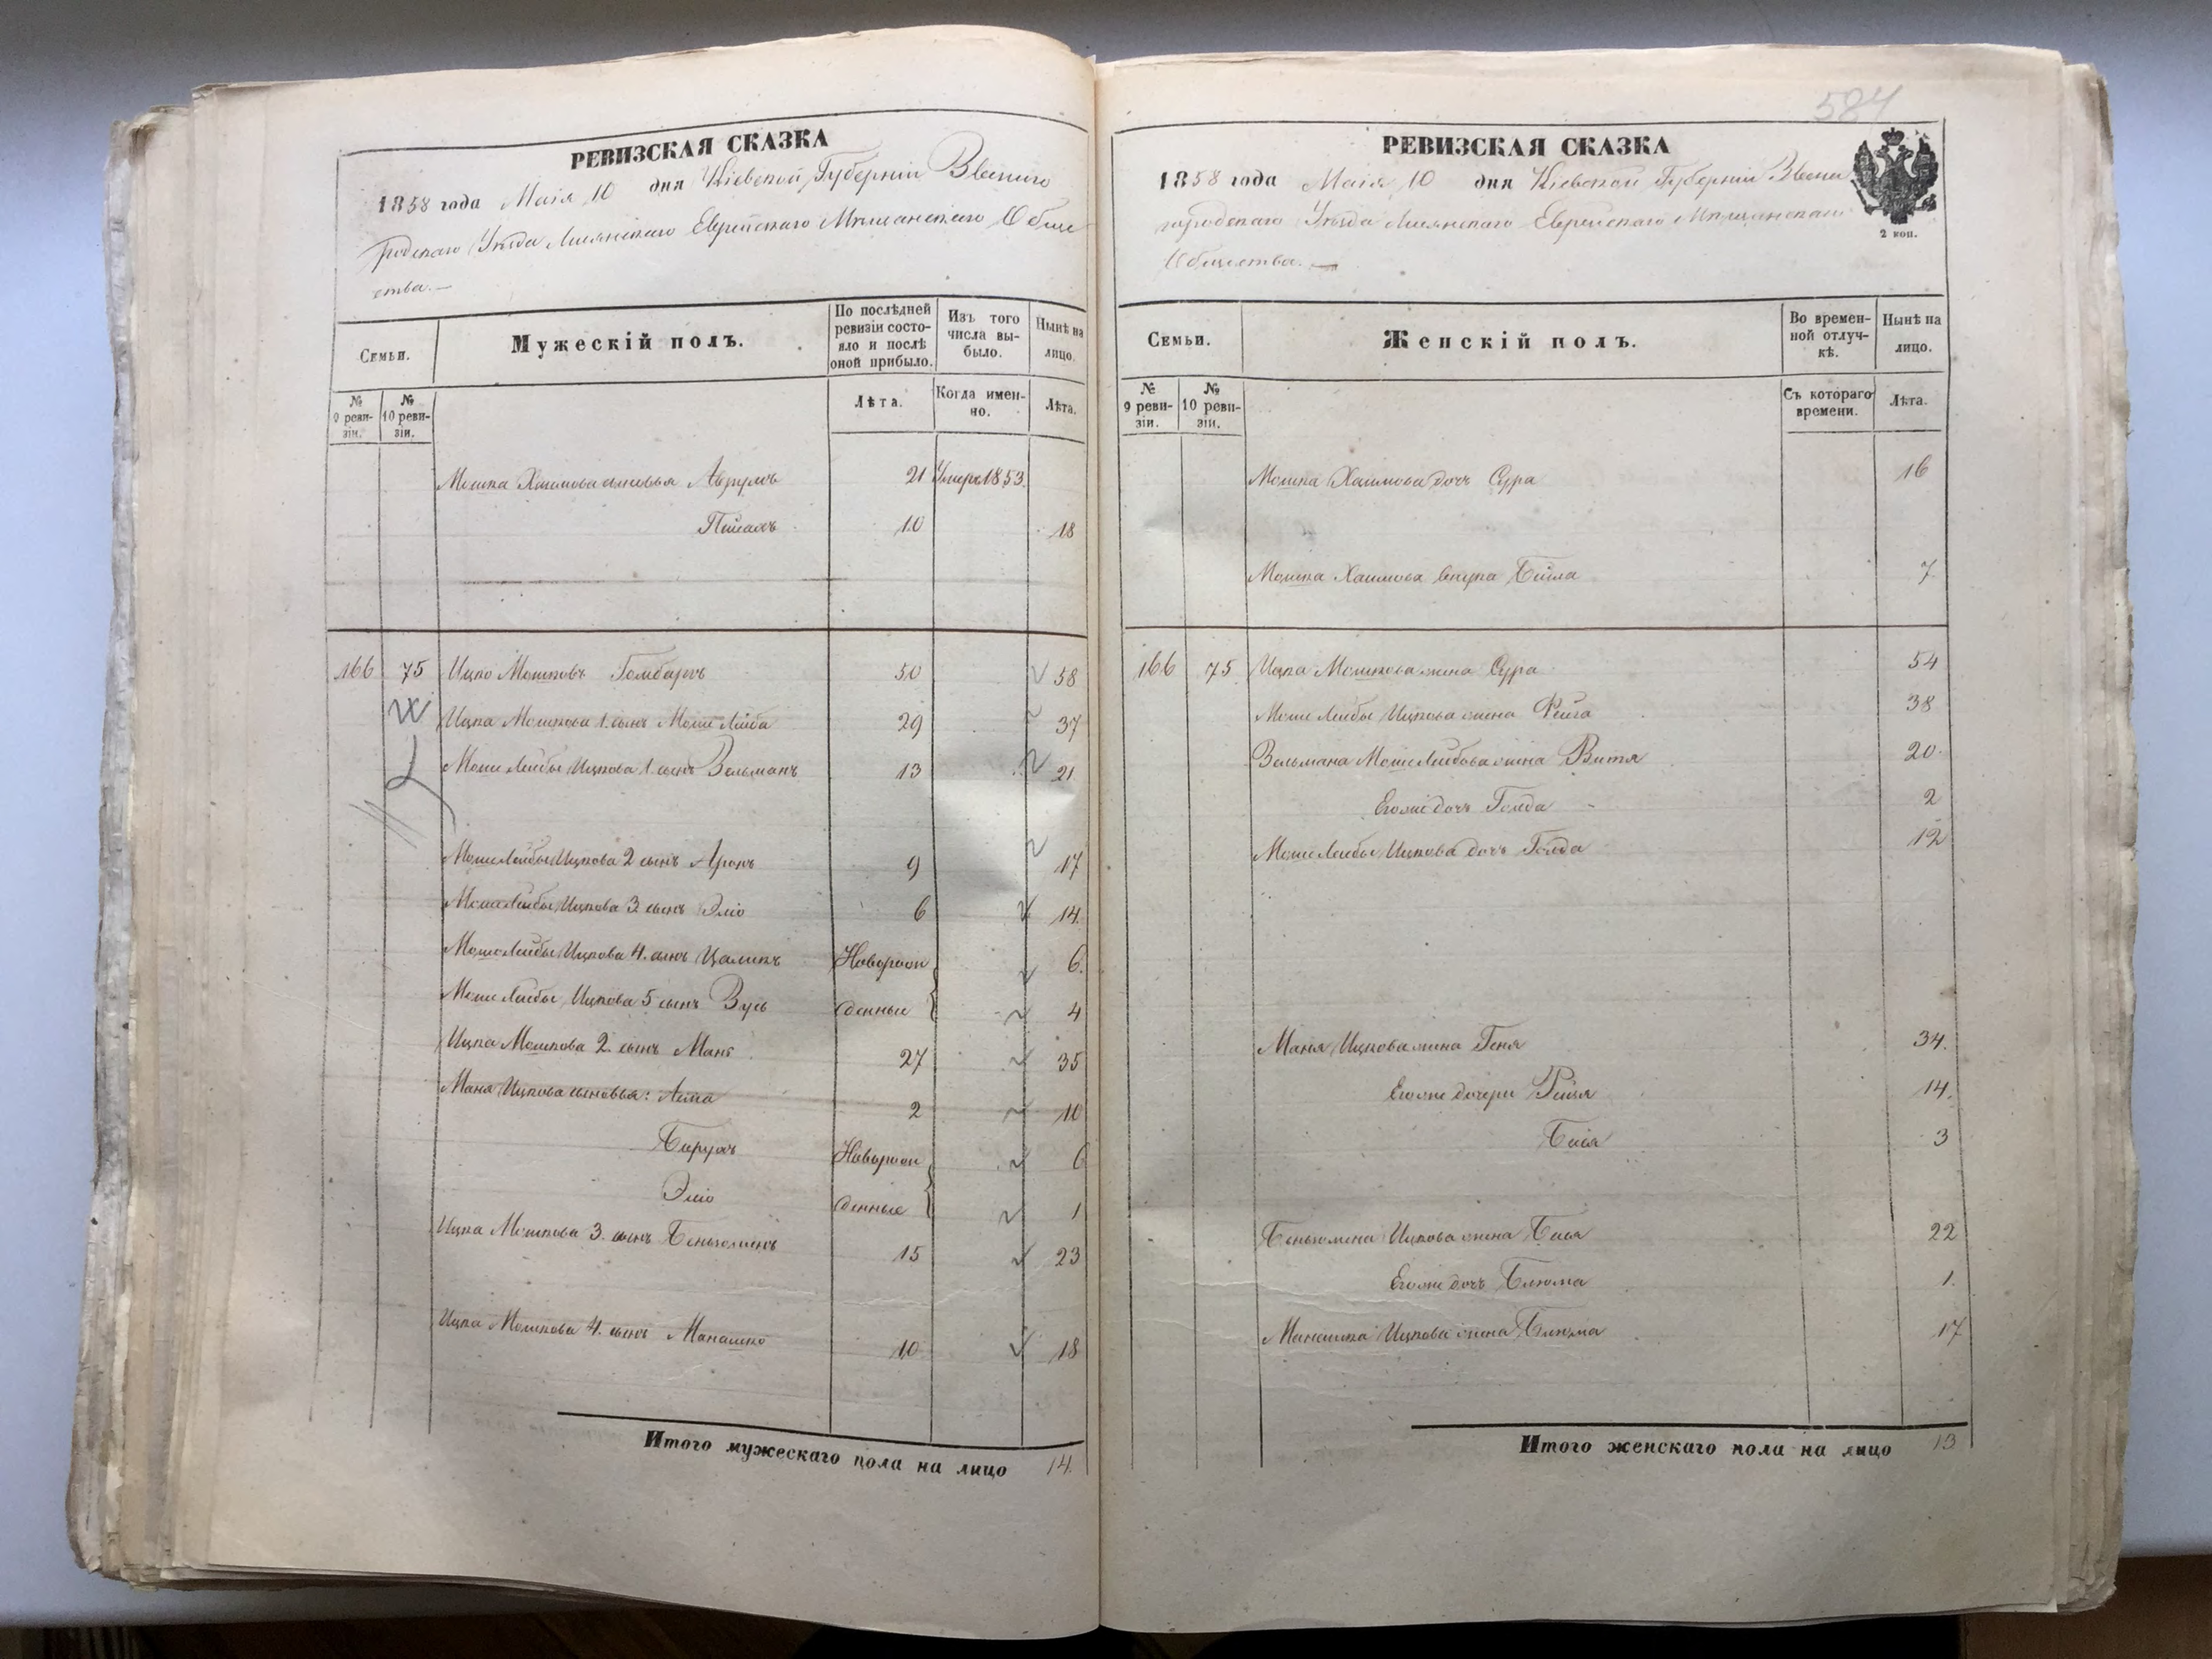 РЕВИЗСКАЯ СКАЗКА
1858 года Маія 10 дня Кіевской Губерніи Звениго
родскаго Уѣзда Лисянскаго Еврейскаго Мѣщанскаго Обще
ства.—
Семьи.
Мужескій полъ.
По послѣдней ревизіи состояло и послѣ оной прибыло.
Изъ того числа выбыло.
Нынѣ на лицо.
№ 9 ревизіи.
№ 10 ревизіи.
Лѣта.
Когда именно.
Лѣта.
Мошка Хаимова сыновья Аврумъ 21 Умеръ 1853
Пейсахъ 10 18
166 75 Ицко Мошковъ Гомбархъ 50 58
Ицка Мошкова 1. сынъ Мошe Лейба 29 37
Моше Лейбы Ицкова 1 сынъ Зельманъ 13 21
Моше Лейбы Ицкова 2 сынъ Аронъ 9 17
Моше Лейбы Ицкова 3. сынъ Эліо 6 14.
Моше Лейбы Ицкова 4. сынъ Цаликъ Новорож 6.
Моше Лейбы Ицкова 5 сынъ Зусь денные 4
Ицка Мошкова 2. сынъ Маня 27 35
Маня Ицкова сыновья: 2 10
Барухъ Новорож 6
Эліо денные 1
Ицка Мошкова 3. сынъ Беньюминъ 15 23
Ицка Мошкова 4. сынъ Манашко 10 18
Итого мужескаго пола на лицо 14.
584
РЕВИЗСКАЯ СКАЗКА
1858 года Маія 10 дня Кіевской Губерніи Звени
городскаго Уѣзда Лисянскаго Еврейскаго Мѣщанскаго
Общества.—
2 коп.
Семьи.
Женскій полъ.
Во временной отлучкѣ.
Нынѣ на лицо.
№ 9 ревизіи.
№ 10 ревизіи.
Съ котораго времени.
Лѣта.
Мошка Хаимова дочь Сура 16
Мошка Хаимова внука Бейла 7
166 75 Ицка Мошкова жена Сура 54
Моше Лейбы Ицкова жена Фейга 38
Зельмана Моше Лейбова жена Витя 20
Егоже дочь Голда 2
Моше Лейбы Ицкова дочь Голда 12
Маня Ицкова жена Геня 34.
Егоже дочери Рейзя 14.
Бася 3
Беньюмена Ицкова жена Бася 22
Егоже дочь Блюма 1.
Манашка Ицкова жена Блюма 17
Итого женскаго пола на лицо 13